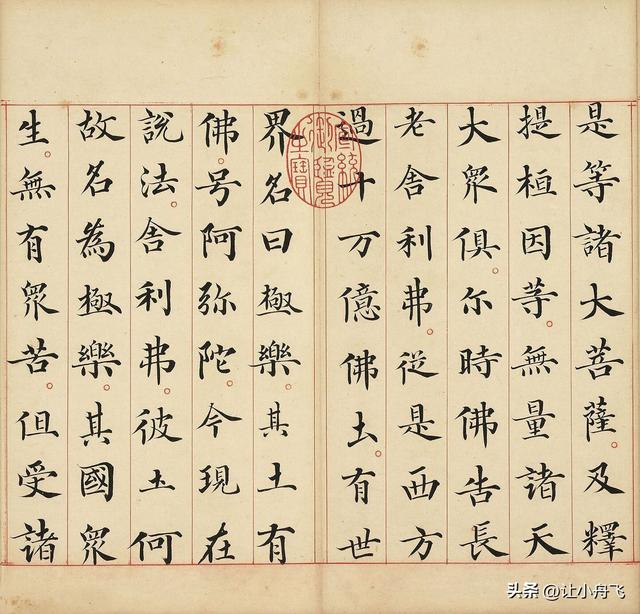 是等諸大菩薩。及釋
提桓因等。無量諸天
大眾俱。尔時佛告長
老舍利弗。從是西方
過十万億佛土。有世
界名曰極樂。其土有
佛。号阿弥陀。今現在
說法。舍利弗。彼土何
故名為極樂。其國眾
生。無有眾苦。但受諸
宣統
御覽
之寶
头条 @让小舟飞